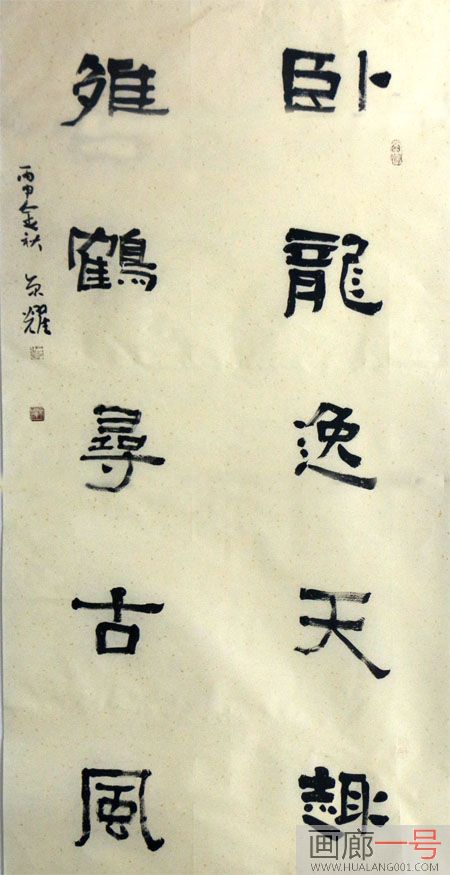 卧龍逸天趣
雏鶴尋古風
丙申金秋 耀
画廊一号
WWW.HUALANG001.COM